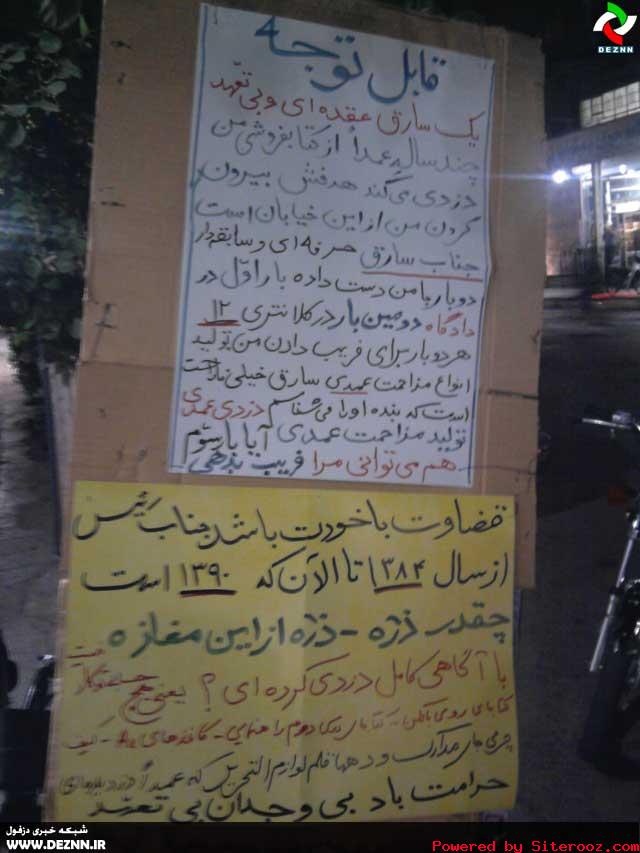 DEZNN
قابل توجه
یک سارق عقده ای و بی تعهد
چند سالِ عمداً از کتابفروشی من
دزدی می کند هدفش بیرون
کردن من از این خیابان است
جناب سارق حرفه ای و سابقه دار
دوبار با من دست داده بار اول در
دادگاه دومین بار در کلانتری ۱۲
هر دو بار برای فریب دادن من تولید
انواع مزاحمت عمدی سارق خیلی ناراحت
است که بنده او را می شناسم دزدی عمدی
تولید مزاحمت عمدی آیا بار سوّم
هم می توانی مرا فریب بدهی
قضاوت با خودت باشد جناب رئیس
از سال ۱۳۸۴ تا الآن که ۱۳۹۰ است
چقدر ذرّه - ذرّه از این مغازه
با آگاهی کامل دزدی کرده ای ؟ یعنی هیچ
کتابای روی بالکن - کتابای دوم راهنمایی - کاغذهای A4 - کیف
چرمی جای مدارک و دهها قلم لوازم التحریر که عمداً دزدیده ای
حرامت باد بی وجدان بی تعهد
شبکه خبری دزفول
WWW.DEZNN.IR
Powered by Siterooz.com